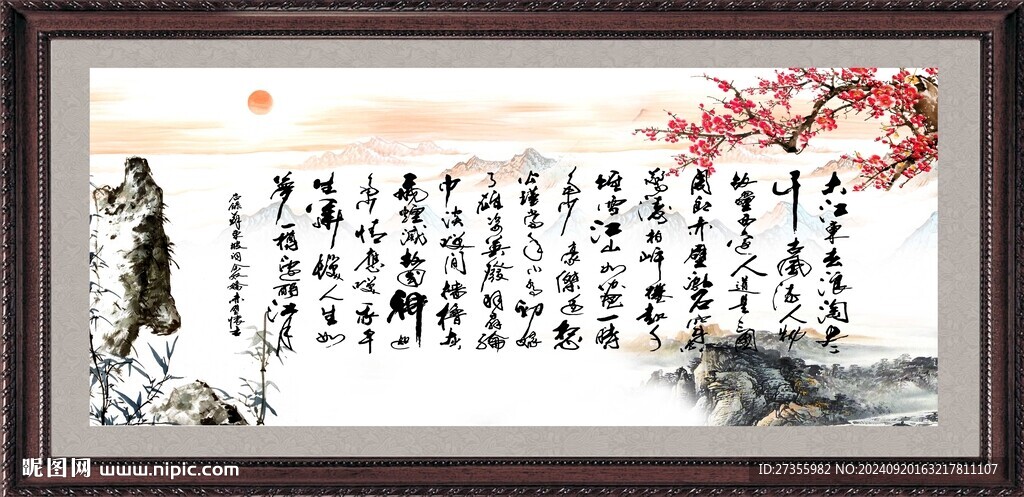 大江東去浪淘盡
千古風流人物
故壘西邊人道是三國
周郎赤壁亂石穿空
驚濤拍岸捲起千
堆雪江山如畫一時
多少豪傑遙想
公瑾當年小喬初嫁
了雄姿英發羽扇綸
巾談笑間檣櫓灰
飛煙滅故國神遊
多情應笑我早
生華髮人生如
夢一樽還酹江月
蘇東坡詞念奴嬌赤壁懷古
昵图网 www.nipic.com
ID:27355982 NO:20240920163217811107